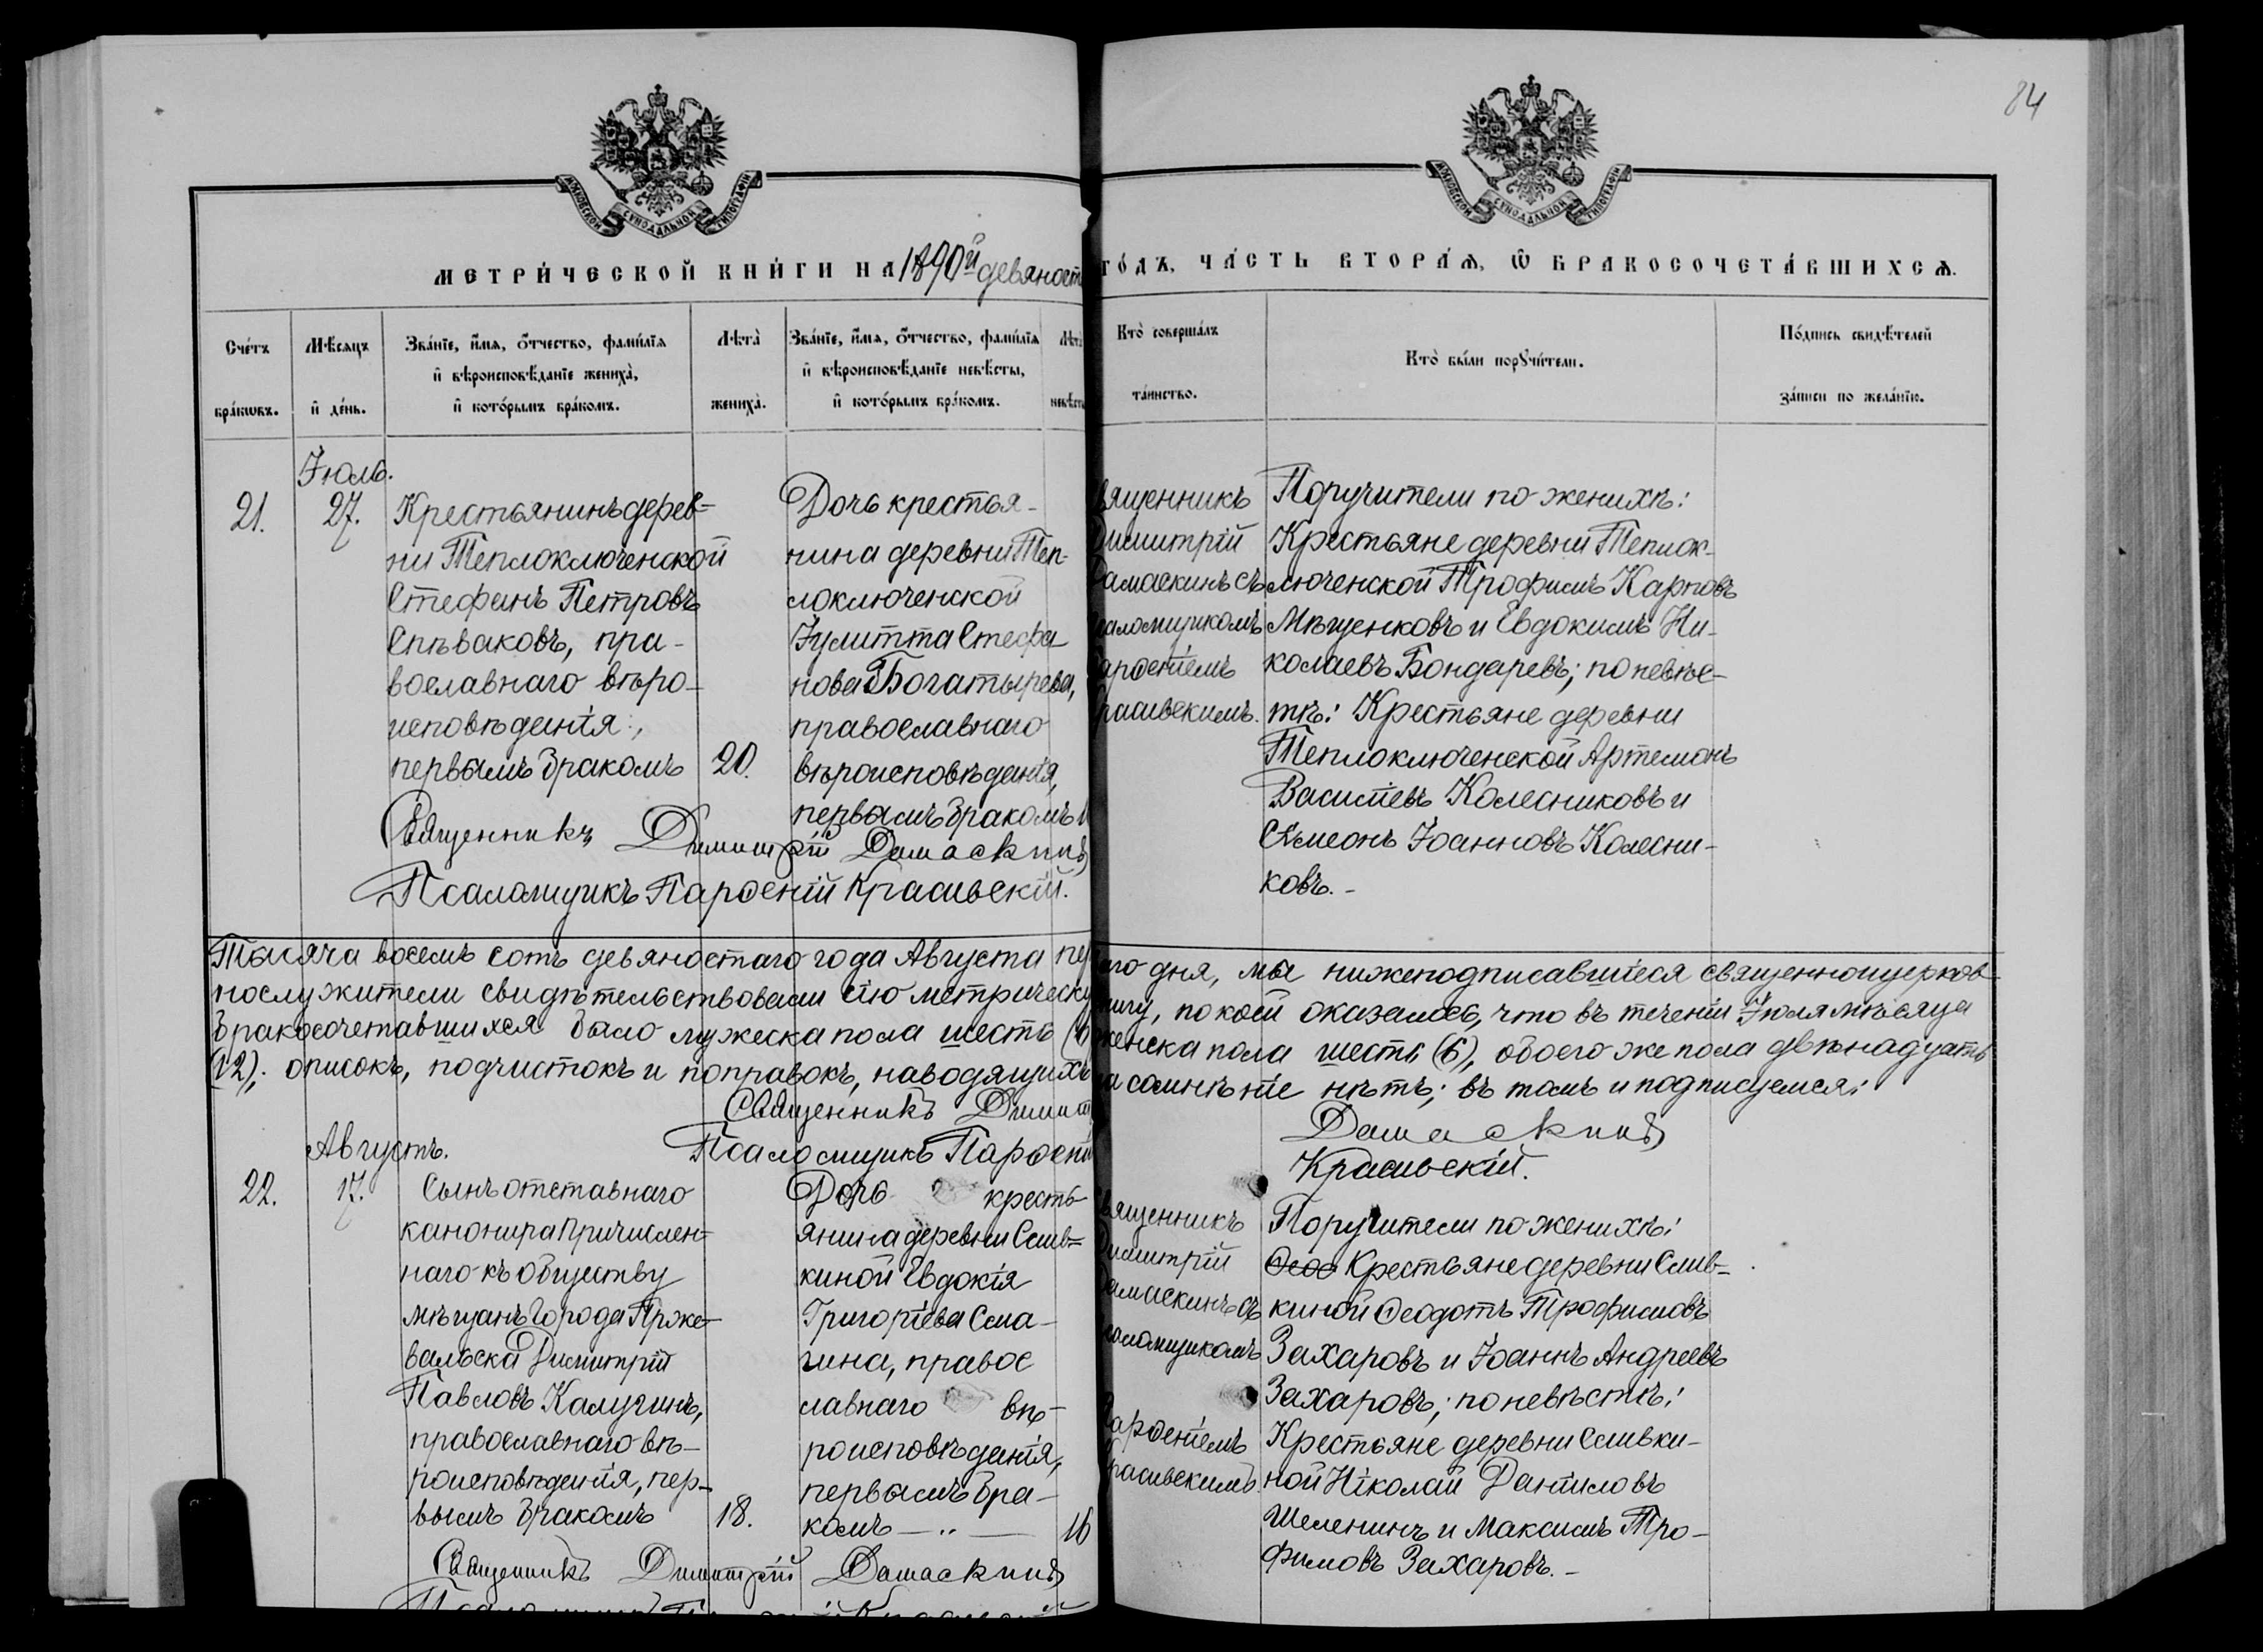 84
МОСКОВСКОЙ СѴНОДАЛЬНОЙ ТИПОГРАФІИ
МОСКОВСКОЙ СѴНОДАЛЬНОЙ ТИПОГРАФІИ
МЕТРИ́ЧЕСКОЙ КНИ́ГИ НА 1890й девяност
ГО́ДЪ, ЧА́СТЬ ВТОРА́Ѧ, Ѡ БРАКОСОЧЕТА́ВШИХСѦ.
Сче́тъ бра́кωвъ.
Мѣ́сяцъ и҆ де́нь.
Зва́нїе, и҆́мѧ, ѻ҆́тчество, фами́лїѧ
и҆ вѣроисповѣ́данїе жениха̀,
и҆ кото́рымъ бра́комъ.
Лѣта̀ жениха̀.
Зва́нїе, и҆́мѧ, ѻ҆́тчество, фами́лїѧ
и҆ вѣроисповѣ́данїе невѣ́сты,
и҆ кото́рымъ бра́комъ.
Лѣта̀ невѣ́ст
Кто̀ соверша́лъ
та́инство.
Кто̀ бы́ли порꙋчи́тели.
По́дпись свидѣ́телей
за́писи по жела́нїю.
Іюль.
21.
27.
Крестьянинъ дерев-
ни Теплоключенской
Стефанъ Петровъ
Спѣваковъ, пра-
вославнаго вѣро-
исповѣданія,
первымъ бракомъ
20.
Дочь крестья-
нина деревни Теп-
лоключенской
Іулитта Стефа-
нова Богатырева,
православнаго
вѣроисповѣданія,
первымъ бракомъ
вященникъ
Димитрій
Дамаскинъ съ
саломщикомъ
арѳеніемъ
расивскимъ.
Поручители по женихѣ:
Крестьяне деревни Теплок-
люченской Трофимъ Карповъ
Мѣщенковъ и Евдокимъ Ни-
колаевъ Бондаревъ; по невѣс-
тѣ: Крестьяне деревни
Теплоключенской Артемонъ
Василіевъ Колесниковъ и
Сѵмеонъ Іоанновъ Колесни-
ковъ. -
Священникъ Димитрій Дамаскинъ
Псаломщикъ Парѳеній Красивскій.
Тысяча восемь сотъ девяностаго года Августа пер
аго дня, мы нижеподписавшіеся священноцерков-
нослужители свидѣтельствовали сію метрическу
нигу, по коей оказалось, что въ теченіи Іюля мѣсяца
бракосочетавшихся было мужеска пола шесть (6
женска пола шесть (6), обоего же пола двѣнадцать
(12); описокъ, подчистокъ и поправокъ, наводящихъ
на сомнѣніе нѣтъ; въ томъ и подписуемся:
Священникъ Димит
Дамаскинъ
Псаломщикъ Парѳені
Красивскій.
Августъ.
22.
17.
Сынъ отставнаго
канонира причислен-
наго къ обществу
мѣщанъ города Прже-
вальска Димитрій
Павловъ Калугинъ,
православнаго вѣ-
роисповѣданія, пер-
вымъ бракомъ
18.
Дочь кресть-
янина деревни Слив-
киной Евдокія
Григоріева Сма-
гина, правос
лавнаго вѣ-
роисповѣданія,
первымъ бра-
комъ — ,, —
16
вященникъ
Димитрій
амаскинъ съ
саломщикомъ
арѳеніемъ
расивскимъ.
Поручители по женихѣ:
Крестьяне деревни Слив-
киной Ѳеодотъ Трофимовъ
Захаровъ и Іоаннъ Андреевъ
Захаровъ; по невѣстѣ:
Крестьяне деревни Сливки-
ной Николай Даніиловъ
Шеленинъ и Максимъ Тро-
фимовъ Захаровъ. -
Священникъ Димитрій Дамаскинъ